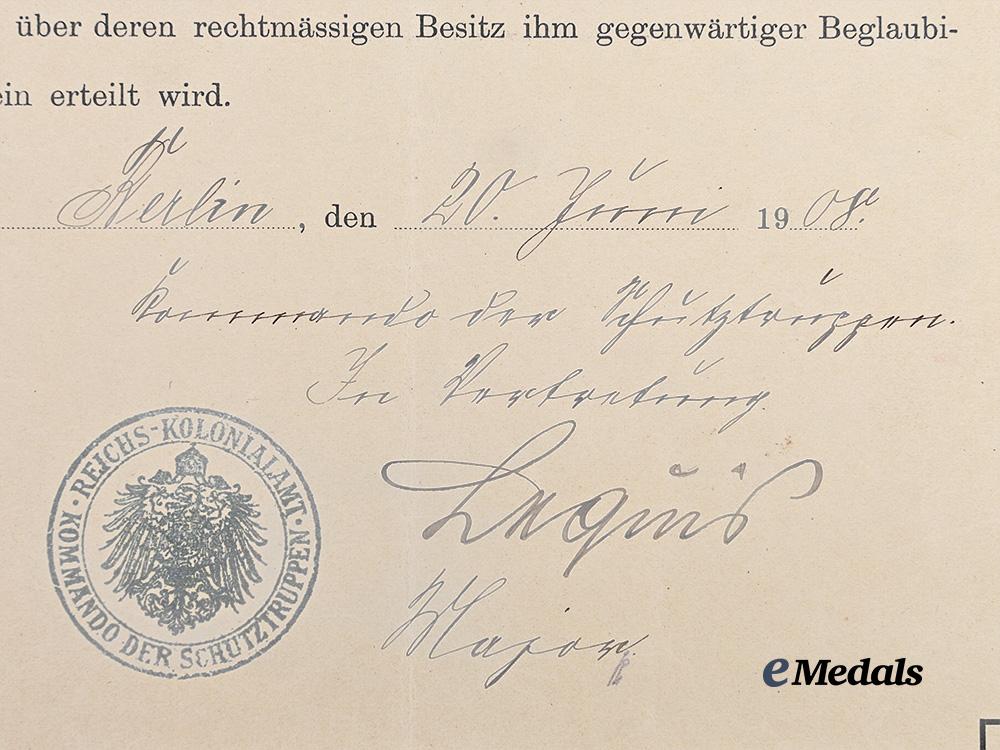 über deren rechtmässigen Besitz ihm gegenwärtiger Beglaubi-
ein erteilt wird.
Berlin, den 20. Juni 1908.
Kommando der Schutztruppen.
In Vertretung
Lequis
Major.
REICHS-KOLONIALAMT · KOMMANDO DER SCHUTZTRUPPEN ·
eMedals